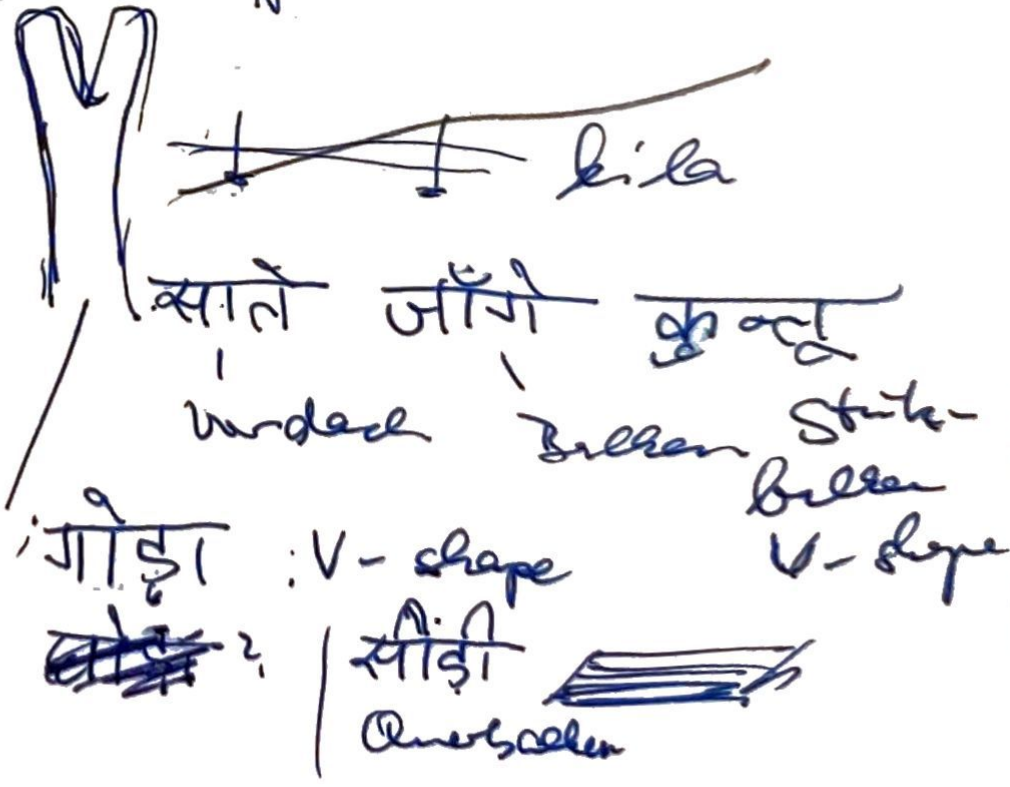 kila
साते जाँगे कुन्दू
Vordach Balken Stütz-
balken
V-shape
गोड़ा : V-shape
? सीड़ी
Querbalken